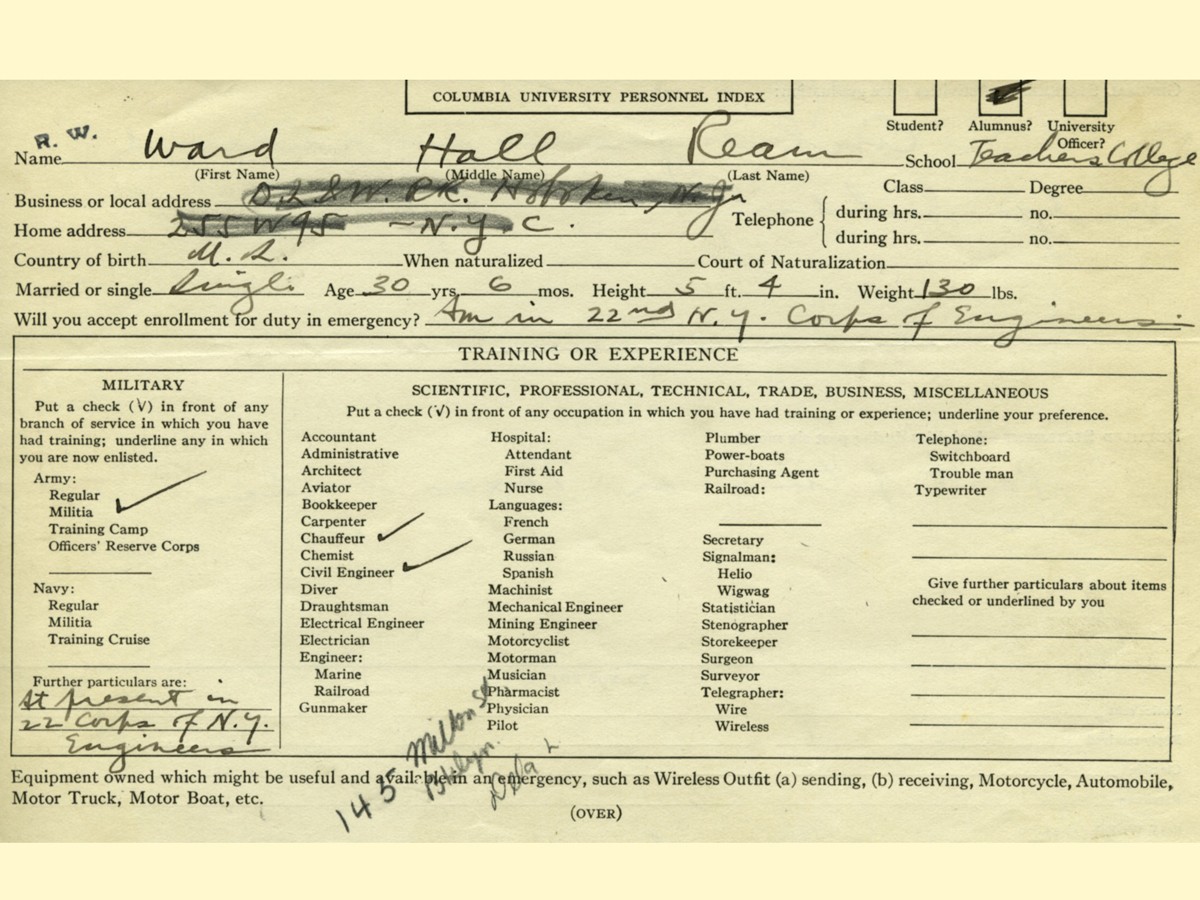 COLUMBIA UNIVERSITY PERSONNEL INDEX
Student? Alumnus? University Officer?
R. W.
Name Ward Hall Ream School Teachers College
(First Name) (Middle Name) (Last Name)
Class Degree
Business or local address D.L & W. RR. Hoboken, N.J.
Telephone { during hrs. no.
Home address 255 W 95 - N.Y.C.
during hrs. no.
Country of birth When naturalized Court of Naturalization
Married or single Single Age 30 yrs. 6 mos. Height 5 ft. 4 in. Weight 130 lbs.
Will you accept enrollment for duty in emergency? Am in 22nd N.Y. Corps of Engineers.
TRAINING OR EXPERIENCE
MILITARY
Put a check (√) in front of any
branch of service in which you have
had training; underline any in which
you are now enlisted.
Army:
Regular
Militia ✓
Training Camp
Officers' Reserve Corps
Navy:
Regular
Militia
Training Cruise
Further particulars are:
At present in
22 Corps of N.Y.
Engineers
SCIENTIFIC, PROFESSIONAL, TECHNICAL, TRADE, BUSINESS, MISCELLANEOUS
Put a check (√) in front of any occupation in which you have had training or experience; underline your preference.
Accountant
Administrative
Architect
Aviator
Bookkeeper
Carpenter
Chauffeur ✓
Chemist
Civil Engineer ✓
Diver
Draughtsman
Electrical Engineer
Electrician
Engineer:
Marine
Railroad
Gunmaker
Hospital:
Attendant
First Aid
Nurse
Languages:
French
German
Russian
Spanish
Machinist
Mechanical Engineer
Mining Engineer
Motorcyclist
Motorman
Musician
Pharmacist
Physician
Pilot
Plumber
Power-boats
Purchasing Agent
Railroad:
Secretary
Signalman:
Helio
Wigwag
Statistician
Stenographer
Storekeeper
Surgeon
Surveyor
Telegrapher:
Wire
Wireless
Telephone:
Switchboard
Trouble man
Typewriter
Give further particulars about items
checked or underlined by you
145 Milton St
Bklyn.
Equipment owned which might be useful and available in an emergency, such as Wireless Outfit (a) sending, (b) receiving, Motorcycle, Automobile,
Motor Truck, Motor Boat, etc.
(OVER)